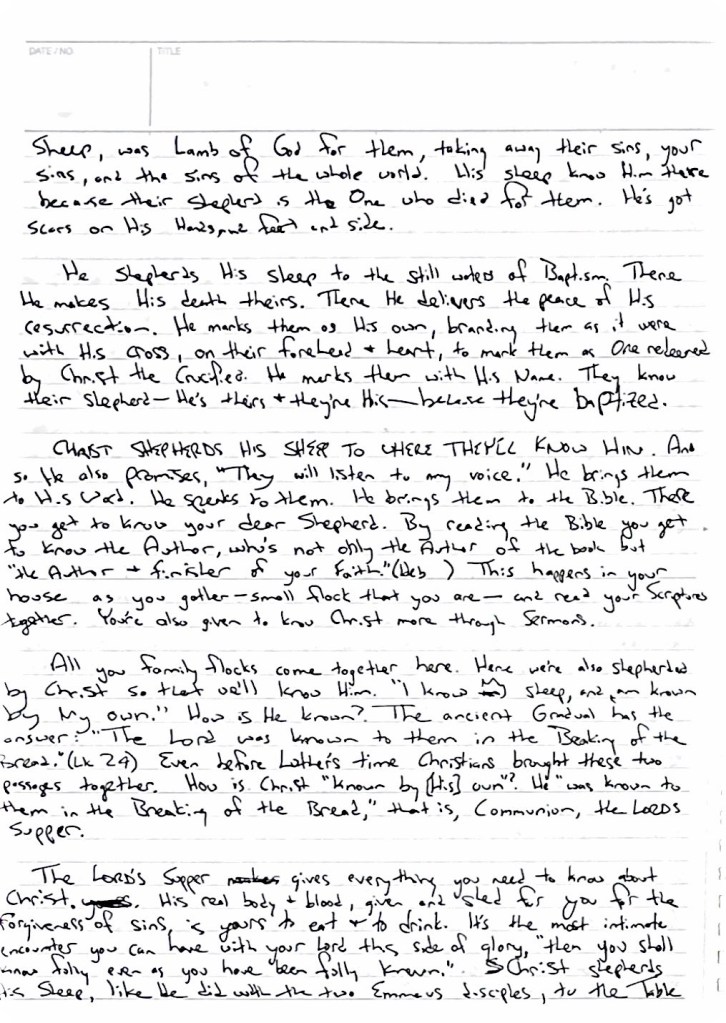 DATE / NO TITLE
Sheep, was Lamb of God for them, taking away their sins, your
sins, and the sins of the whole world. His sheep know Him there
because their Shepherd is the One who died for them. He's got
scars on His Hands and feet and side.
He Shepherds His sheep to the still waters of Baptism. There
He makes His death theirs. There He delivers the peace of His
resurrection. He marks them as His own, branding them as it were
with His cross, on their forehead + heart, to mark them as One redeemed
by Christ the Crucified. He marks them with His Name. They know
their Shepherd — He's theirs + they're His — because they're baptized.
CHRIST SHEPHERDS HIS SHEEP TO WHERE THEY'LL KNOW HIM. And
so He also promises, "They will listen to my voice." He brings them
to His Word. He speaks to them. He brings them to the Bible. There
you get to know your dear Shepherd. By reading the Bible you get
to know the Author, who's not only the Author of the book but
"the Author + finisher of your Faith." (Heb ) This happens in your
house as you gather — small flock that you are — and read your Scriptures
together. You're also given to know Christ more through Sermons.
All you family flocks come together here. Here we're also shepherded
by Christ so that we'll know Him. "I know sheep, and am known
by My own." How is He known? The ancient Gradual has the
answer: "The Lord was known to them in the Breaking of the
Bread." (Lk 24) Even before Luther's time Christians brought these two
passages together. How is Christ "known by [His] own"? He "was known to
them in the Breaking of the Bread," that is, Communion, the LORDS
Supper.
The LORD'S Supper gives everything you need to know about
Christ. His real body + blood, given and shed for you for the
Forgiveness of sins, is yours to eat + to drink. It's the most intimate
encounter you can have with your Lord this side of glory, "then you shall
know fully even as you have been fully known." Christ shepherds
His Sheep, like He did with the two Emmaus disciples, to the Table